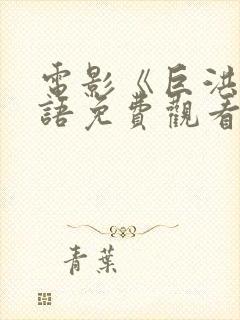 電影《巨洪
語免費觀看
青葉